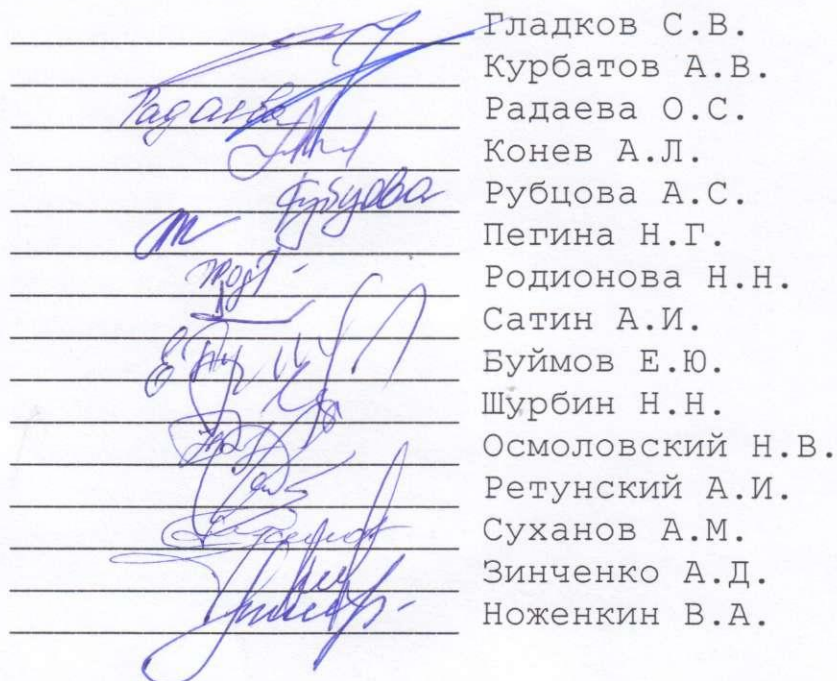 Гладков С.В.
Курбатов А.В.
Радаева Радаева О.С.
Конев А.Л.
Рубцова Рубцова А.С.
Пегина Н.Г.
Родионова Н.Н.
Сатин А.И.
Буймов Е.Ю.
Шурбин Н.Н.
Осмоловский Н.В.
Ретунский А.И.
Суханов А.М.
Зинченко А.Д.
Ноженкин В.А.